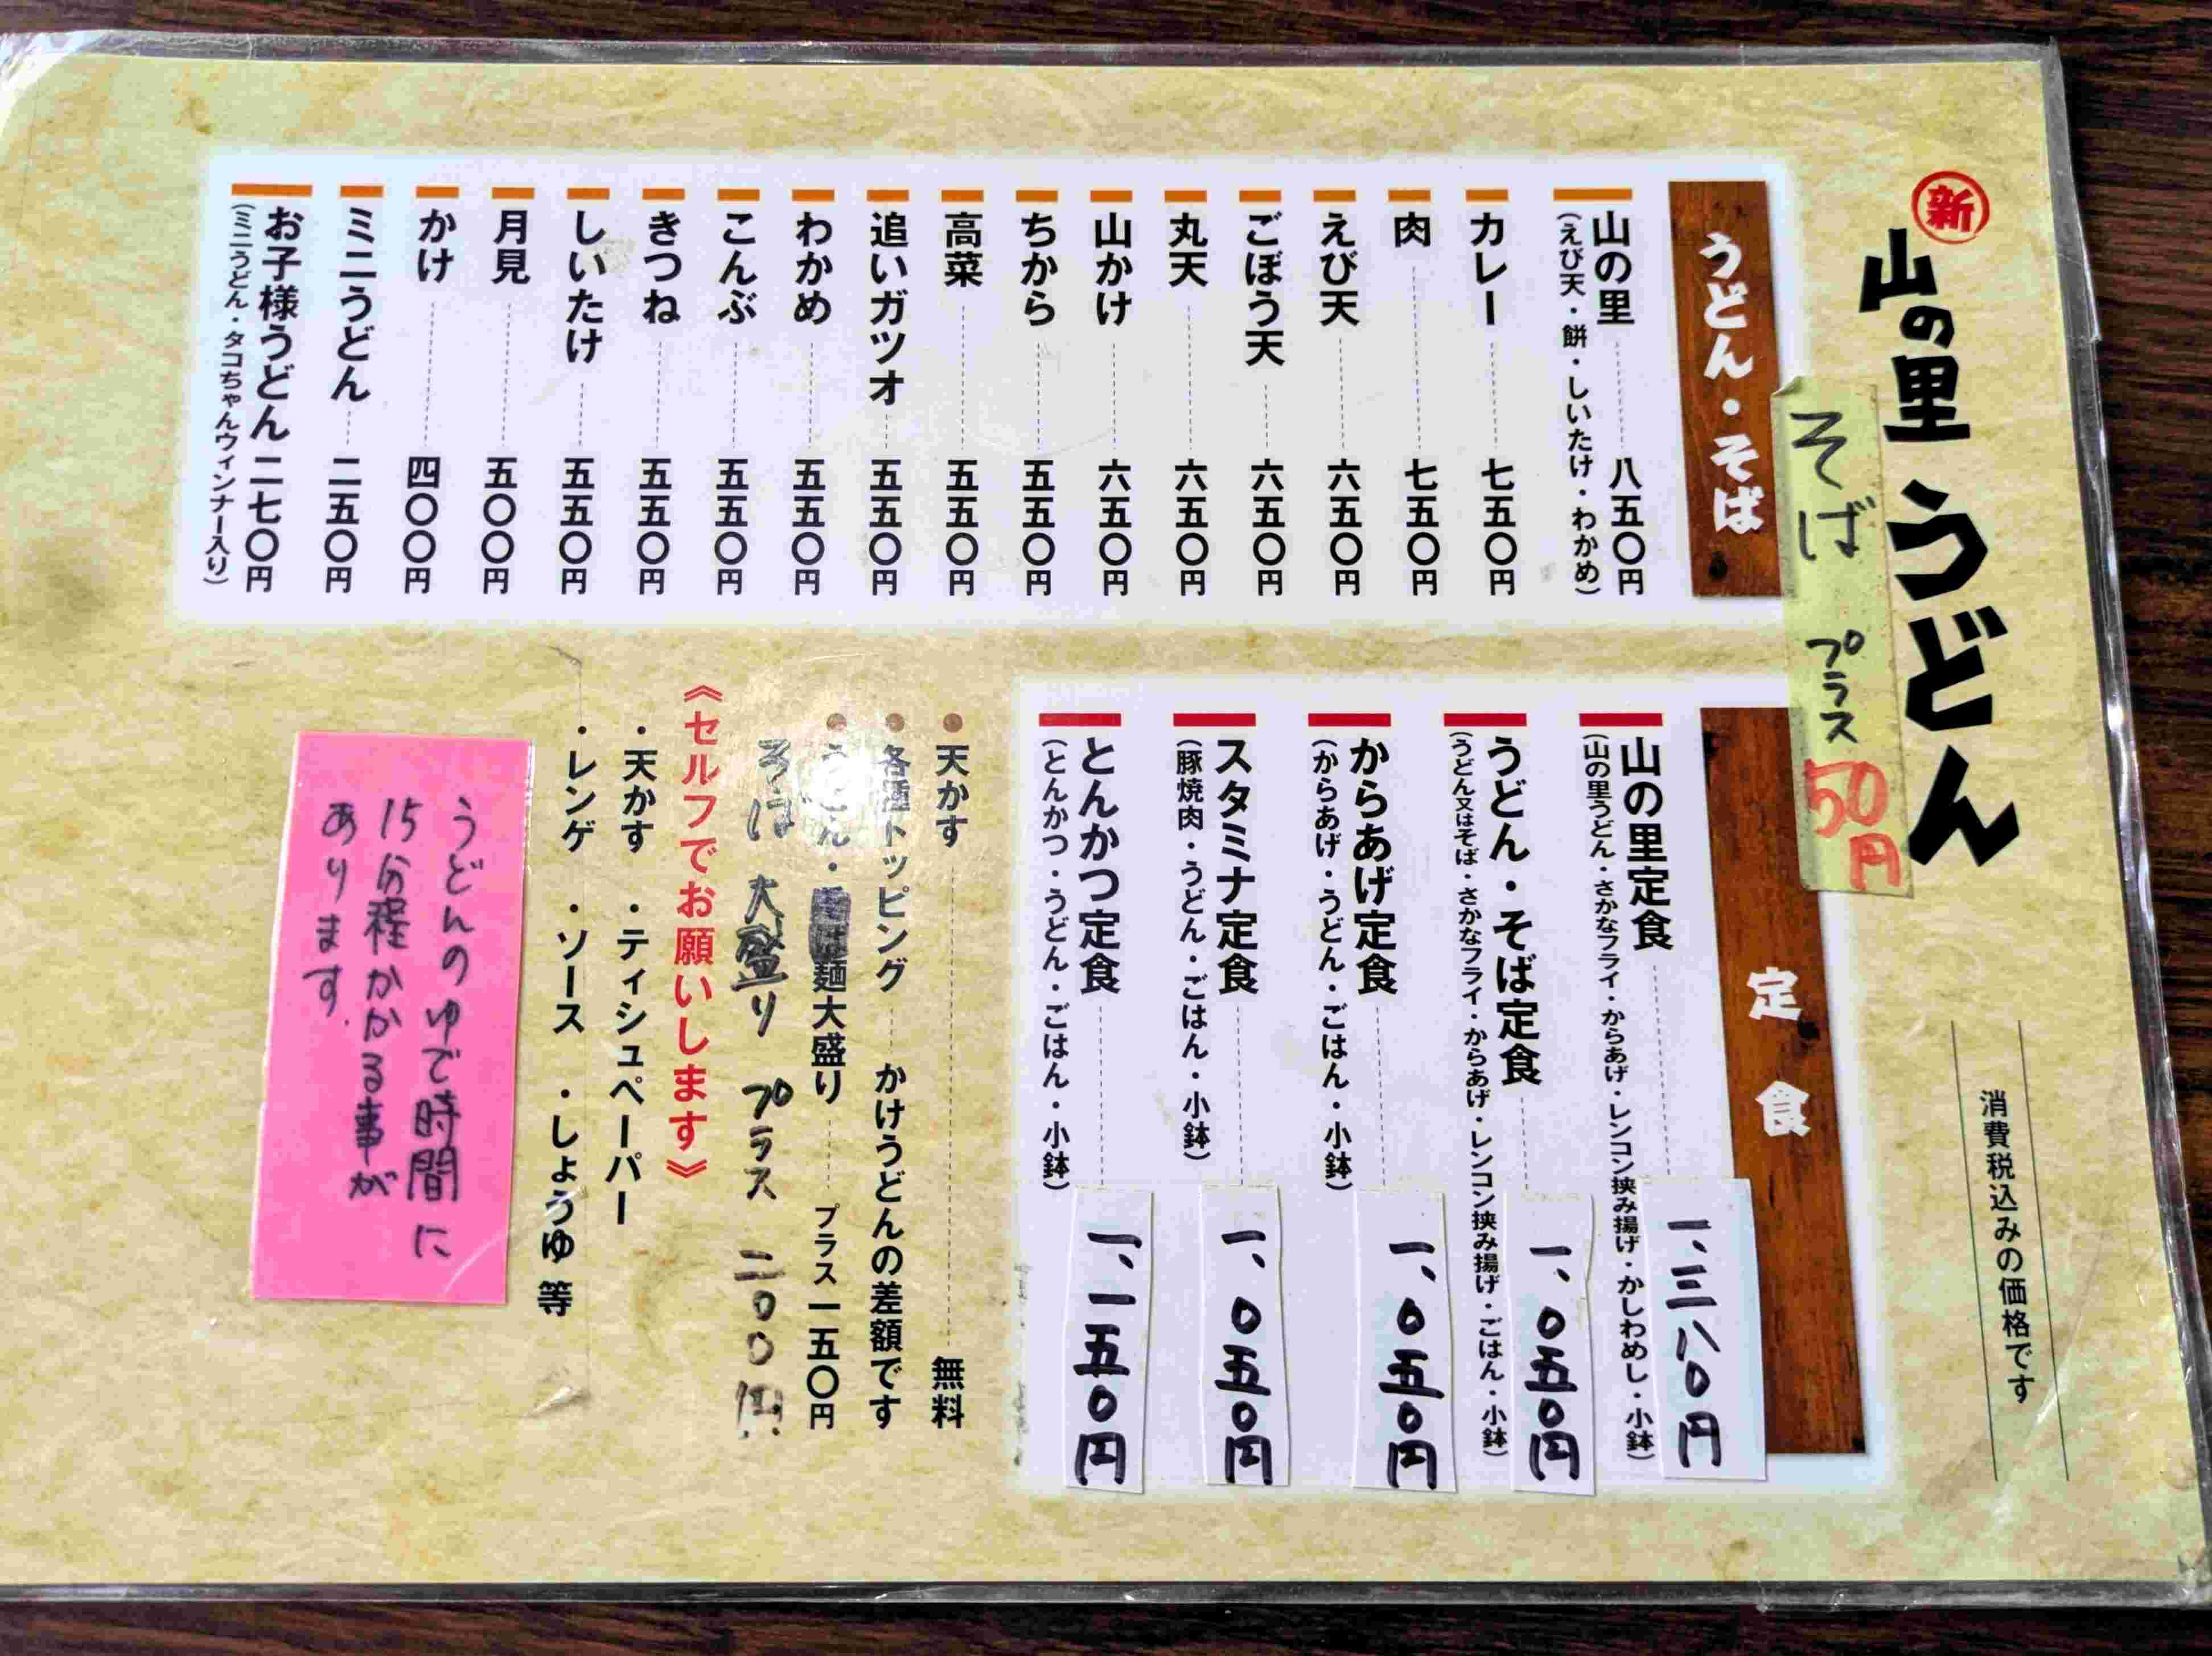 新
山の里うどん
消費税込みの価格です
そば プラス 50円
うどん・そば
山の里 八五〇円
(えび天・餅・しいたけ・わかめ)
カレー 七五〇円
肉 七五〇円
えび天 六五〇円
ごぼう天 六五〇円
丸天 六五〇円
山かけ 六五〇円
ちから 五五〇円
高菜 五五〇円
追いガツオ 五五〇円
わかめ 五五〇円
こんぶ 五五〇円
きつね 五五〇円
しいたけ 五五〇円
月見 五〇〇円
かけ 四〇〇円
ミニうどん 二五〇円
お子様うどん 二七〇円
(ミニうどん・タコちゃんウィンナー入り)
定食
山の里定食 一、三八〇円
(山の里うどん・さかなフライ・からあげ・レンコン挟み揚げ・かしわめし・小鉢)
うどん・そば定食 一、〇五〇円
(うどん又はそば・さかなフライ・からあげ・レンコン挟み揚げ・ごはん・小鉢)
からあげ定食 一、〇五〇円
(からあげ・うどん・ごはん・小鉢)
スタミナ定食 一、〇五〇円
(豚焼肉・うどん・ごはん・小鉢)
とんかつ定食 一、一五〇円
(とんかつ・うどん・ごはん・小鉢)
●天かす 無料
●各種トッピング かけうどんの差額です
●うどん・麺大盛り プラス一五〇円
そば 大盛り プラス 二〇〇円
《セルフでお願いします》
・天かす ・ティシュペーパー
・レンゲ ・ソース ・しょうゆ 等
うどんのゆで時間に
15分程かかる事が
あります.